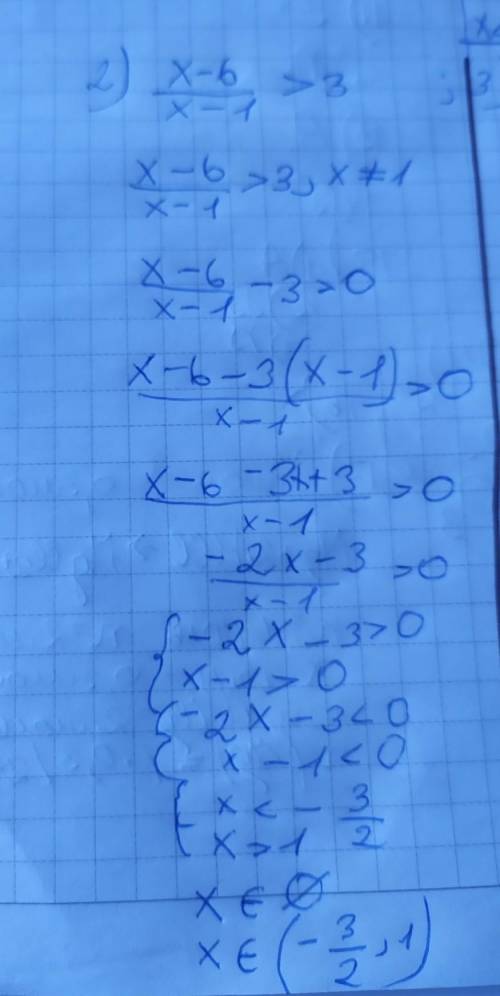 2) (x-6)/(x-1) > 3
(x-6)/(x-1) > 3, x ≠ 1
(x-6)/(x-1) - 3 > 0
(x-6-3(x-1))/(x-1) > 0
(x-6-3x+3)/(x-1) > 0
(-2x-3)/(x-1) > 0
{ -2x-3>0
x-1>0
{ -2x-3<0
x-1<0
{ x < -3/2
x > 1
x ∈ ∅
x ∈ (-3/2, 1)